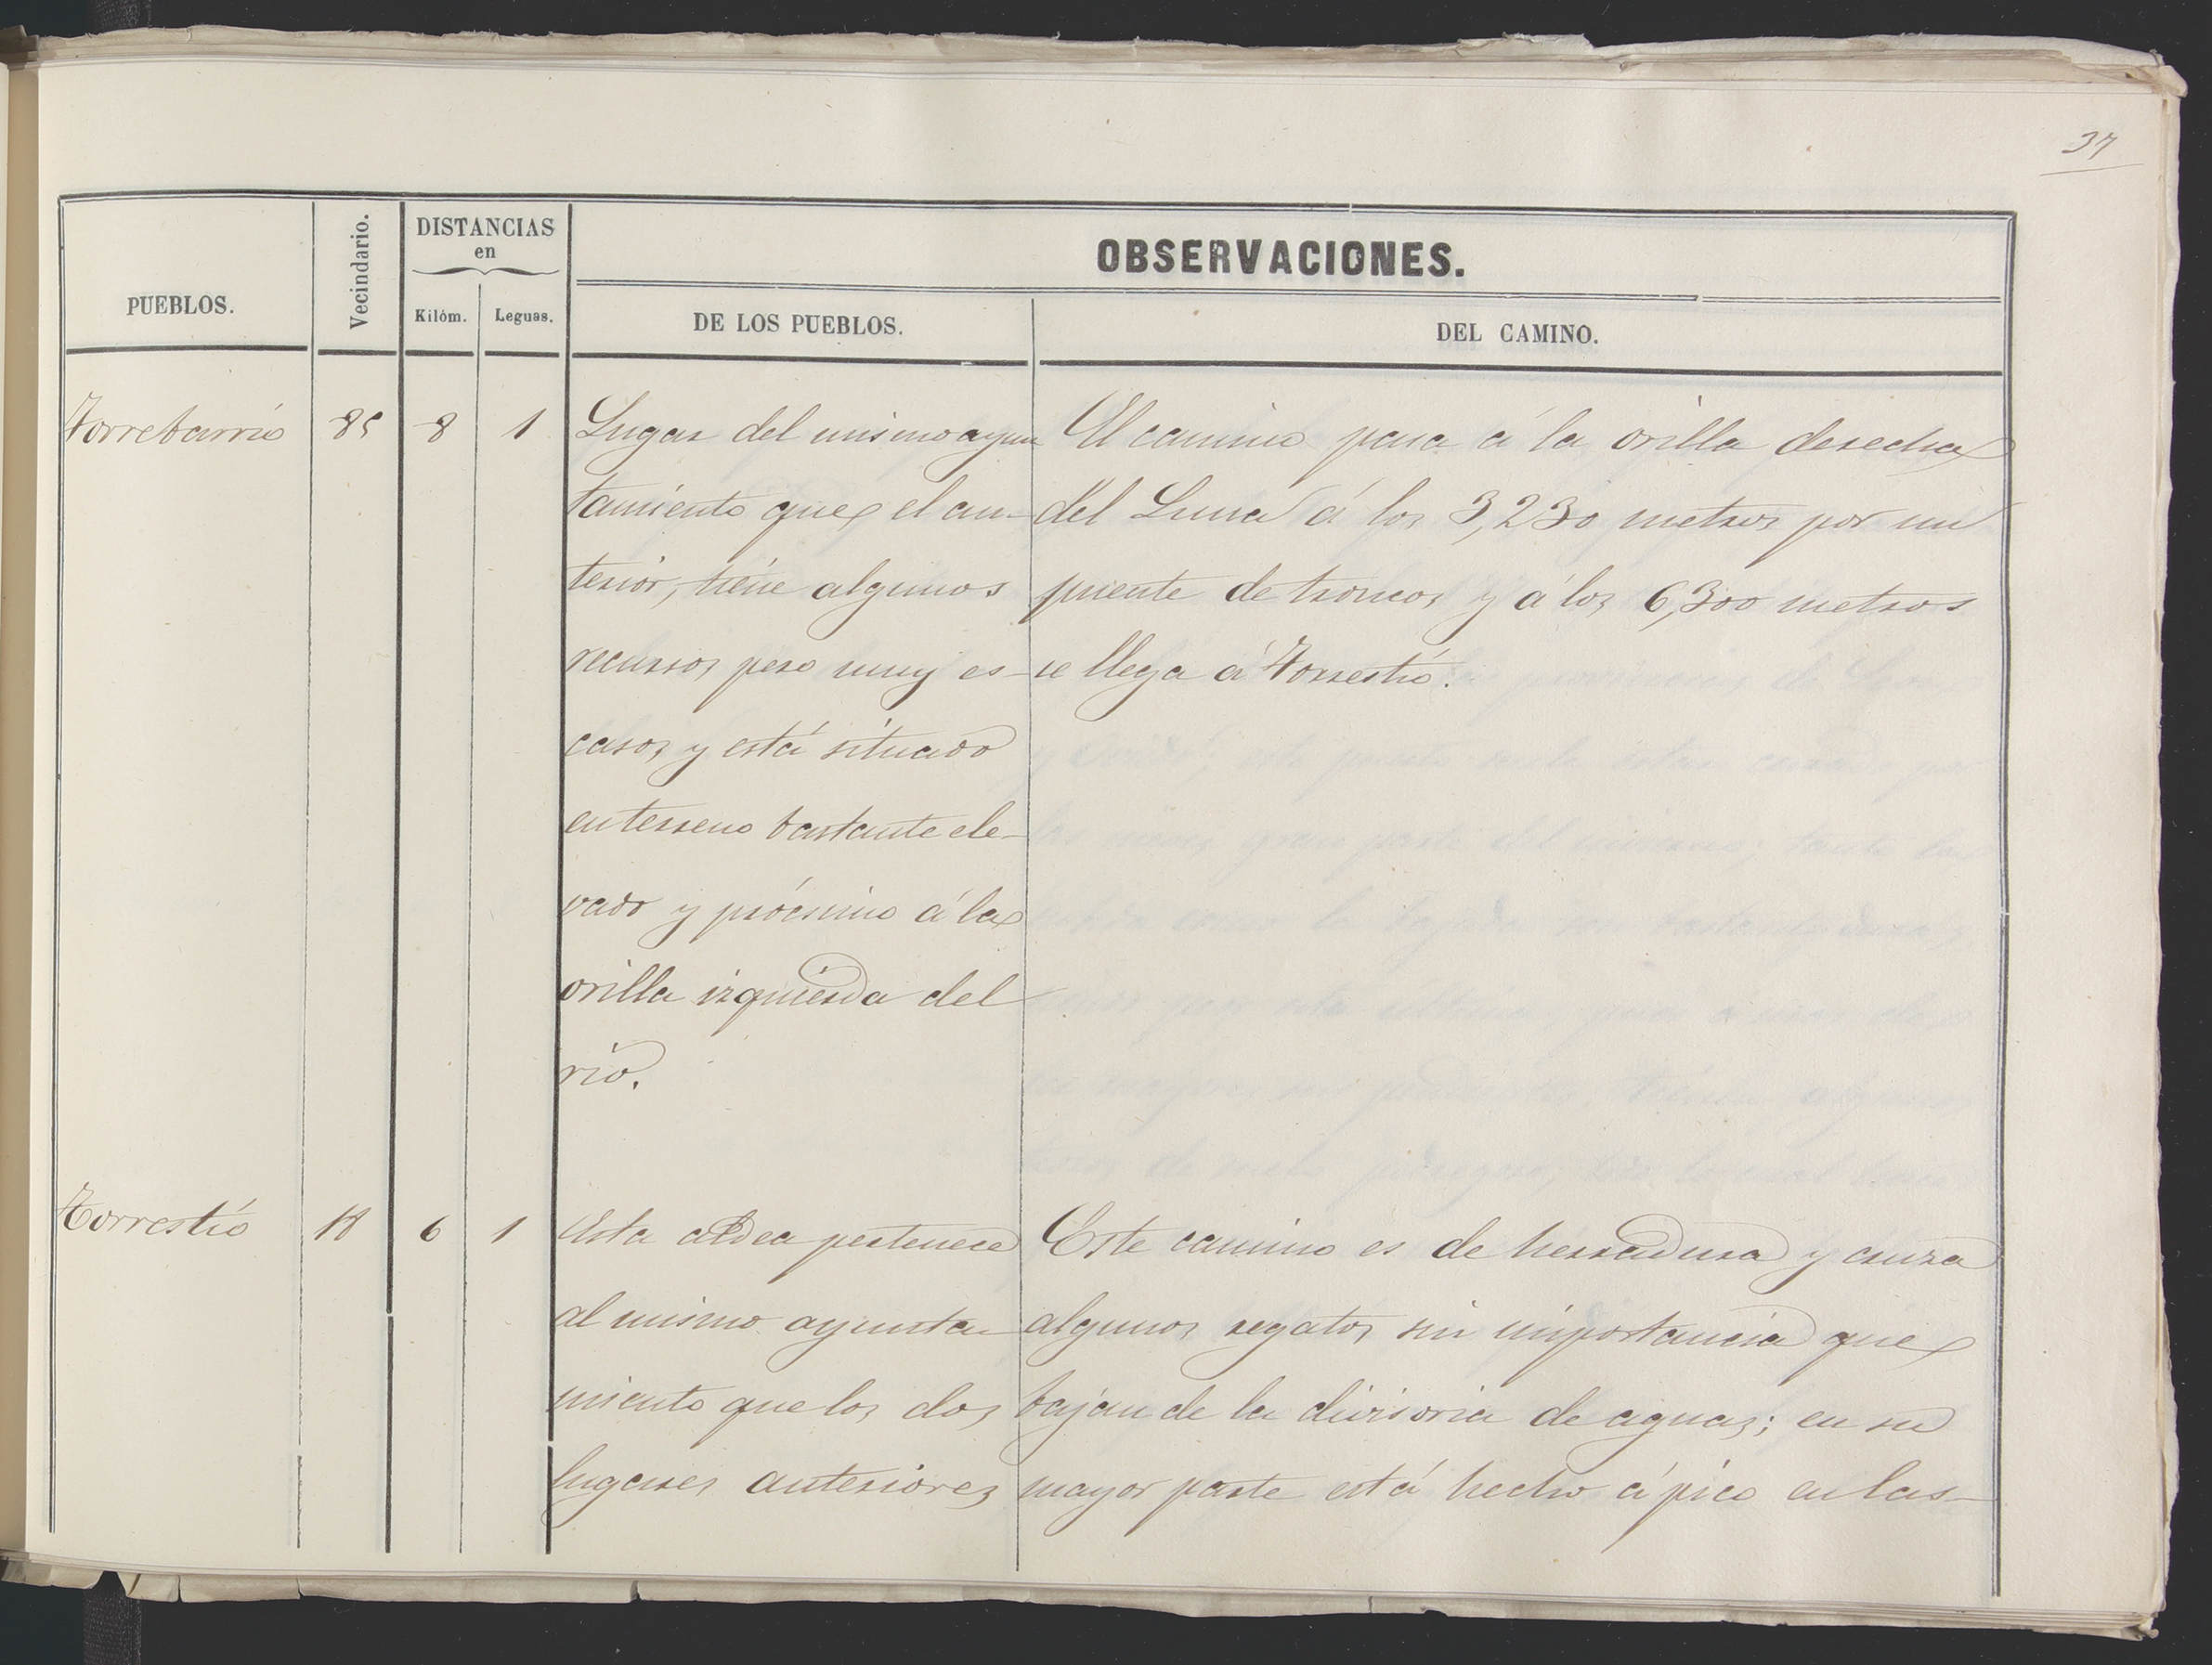 37
PUEBLOS.
Vecindario.
DISTANCIAS
en
Kilóm.
Leguas.
OBSERVACIONES.
DE LOS PUEBLOS.
DEL CAMINO.
Torrebarrio
85
8
1
Lugar del mismo ayun
tamiento que el an-
terior, tiene algunos
recursos pero muy es-
casos y está situado
en terreno bastante ele-
vado y prócsimo á la
orilla izquierda del
río.
El camino pasa á la orilla derecha
del Luna á los 3,230 metros por un
puente de troncos y á los 6,300 metros
se llega á Torrestío.
Torrestío
6
1
Esta aldea pertenece
al mismo ayunta-
miento que los dos
lugares anteriores
Este camino es de herradura y cruza
algunos regatos sin importancia que
bajan de la divisoria de aguas; en su
mayor parte está hecho á pico en las-